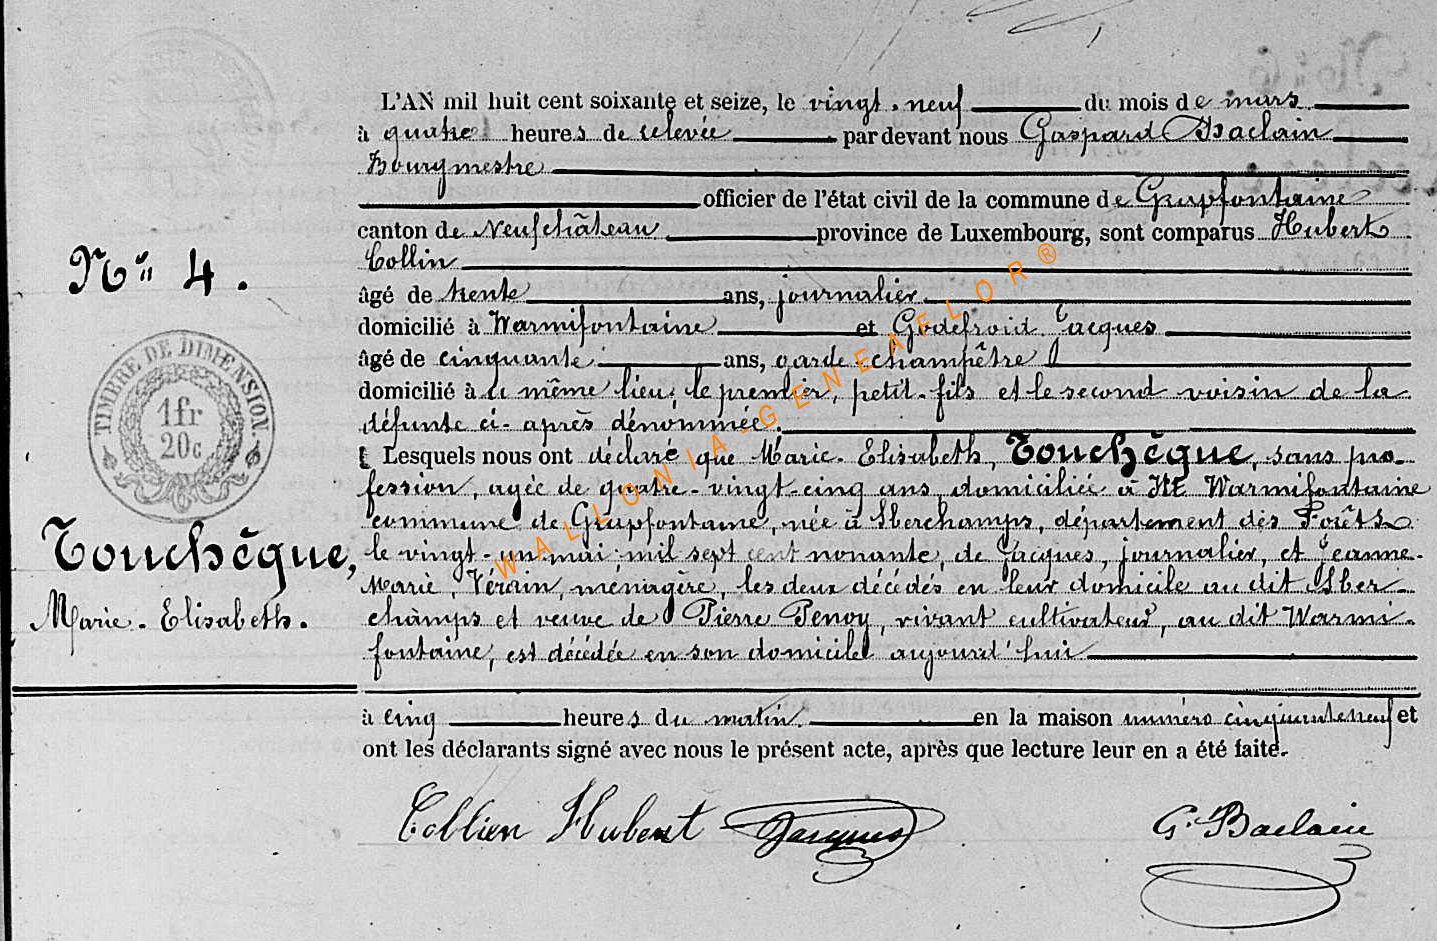 L'AN mil huit cent soixante et seize, le vingt-neuf du mois de mars
à quatre heures de relevée par devant nous Gaspard Baclain
Bourgmestre
officier de l'état civil de la commune de Grapfontaine
canton de Neufchâteau province de Luxembourg, sont comparus Hubert
Collin
âgé de trente ans, journalier
domicilié à Warmifontaine et Godefroid Jacques
âgé de cinquante ans, garde-champêtre
domicilié à ce même lieu, le premier, petit-fils et le second voisin de la
défunte ci-après dénommée.
Lesquels nous ont déclaré que Marie-Elisabeth, Touchèque, sans pro-
fession, agée de quatre-vingt-cinq ans, domiciliée à Warmifontaine
commune de Grapfontaine, née à Sberchamps, département des Forêts
le vingt-un mai mil sept cent nonante, de Jacques, journalier, et Jeanne-
Marie, Vérain, ménagère, les deux décédés en leur domicile au dit Sber-
champs et veuve de Pierre Penoy, vivant cultivateur, au dit Warmi-
fontaine, est décédée en son domicile aujourd'hui
à cinq heures du matin en la maison numéro cinquante neuf et
ont les déclarants signé avec nous le présent acte, après que lecture leur en a été faite.
Collien Hubert Jacques G. Baclain
N° 4.
TIMBRE DE DIMENSION.
1fr
20c
Touchèque,
Marie-Elisabeth.
WALLONIA-GENEAFLOR®